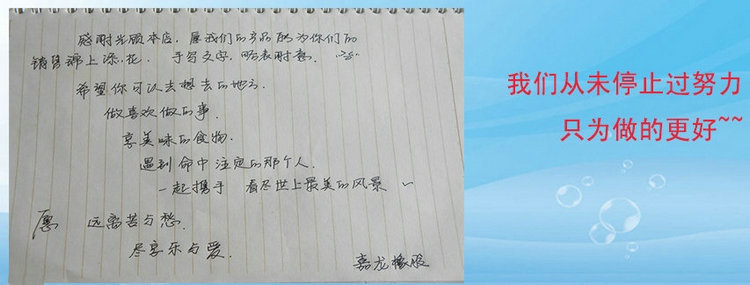 感谢光顾本店,愿我们的产品能为你们的
销售锦上添花. 手写文字,略表谢意.
希望你可以去想去的地方.
做喜欢做的事.
享美味的食物.
遇到命中注定的那个人.
一起携手 看尽世上最美的风景
愿 远离苦与愁.
尽享乐与爱.
嘉龙橡胶
我们从未停止过努力
只为做的更好~~